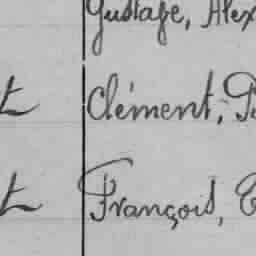 Gustave, Alex
t Clément, P
t François, E